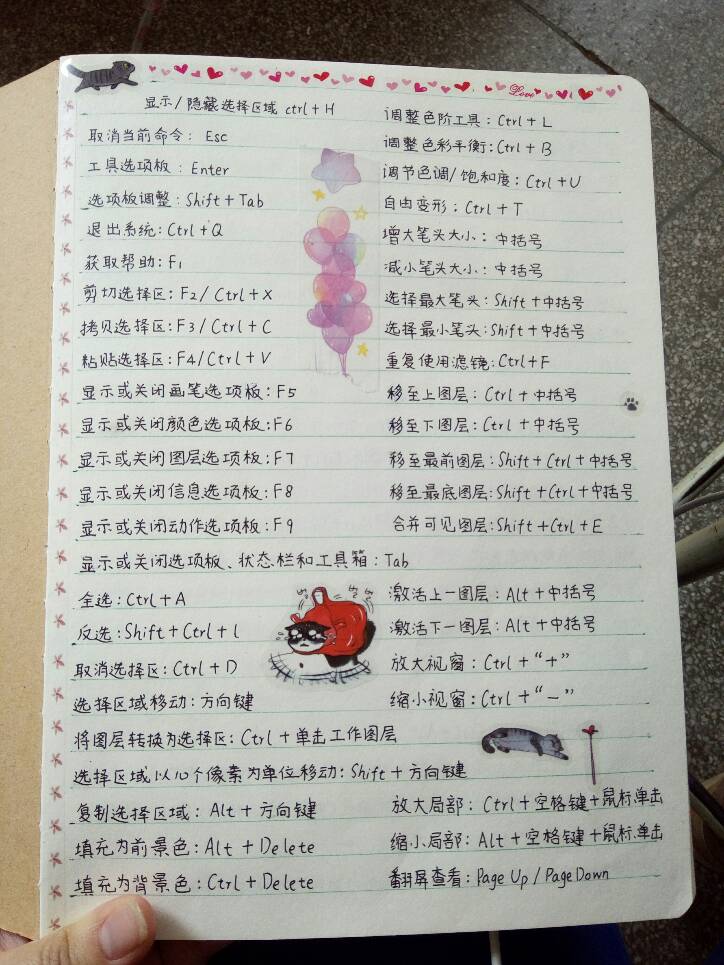 Love
显示/隐藏选择区域 ctrl+H
取消当前命令: Esc
工具选项板: Enter
选项板调整: Shift+Tab
退出系统: Ctrl+Q
获取帮助: F1
剪切选择区: F2/Ctrl+X
拷贝选择区: F3/Ctrl+C
粘贴选择区: F4/Ctrl+V
显示或关闭画笔选项板: F5
显示或关闭颜色选项板: F6
显示或关闭图层选项板: F7
显示或关闭信息选项板: F8
显示或关闭动作选项板: F9
显示或关闭选项板、状态栏和工具箱: Tab
全选: Ctrl+A
反选: Shift+Ctrl+l
取消选择区: Ctrl+D
选择区域移动: 方向键
将图层转换为选择区: Ctrl+单击工作图层
选择区域以10个像素为单位移动: Shift+方向键
复制选择区域: Alt+方向键
填充为前景色: Alt+Delete
填充为背景色: Ctrl+Delete
调整色阶工具: Ctrl+L
调整色彩平衡: Ctrl+B
调节色调/饱和度: Ctrl+U
自由变形: Ctrl+T
增大笔头大小: 中括号
减小笔头大小: 中括号
选择最大笔头: Shift+中括号
选择最小笔头: Shift+中括号
重复使用滤镜: Ctrl+F
移至上图层: Ctrl+中括号
移至下图层: Ctrl+中括号
移至最前图层: Shift+Ctrl+中括号
移至最底图层: Shift+Ctrl+中括号
合并可见图层: Shift+Ctrl+E
激活上一图层: Alt+中括号
激活下一图层: Alt+中括号
放大视窗: Ctrl+“+”
缩小视窗: Ctrl+“-”
放大局部: Ctrl+空格键+鼠标单击
缩小局部: Alt+空格键+鼠标单击
翻屏查看: Page Up/Page Down